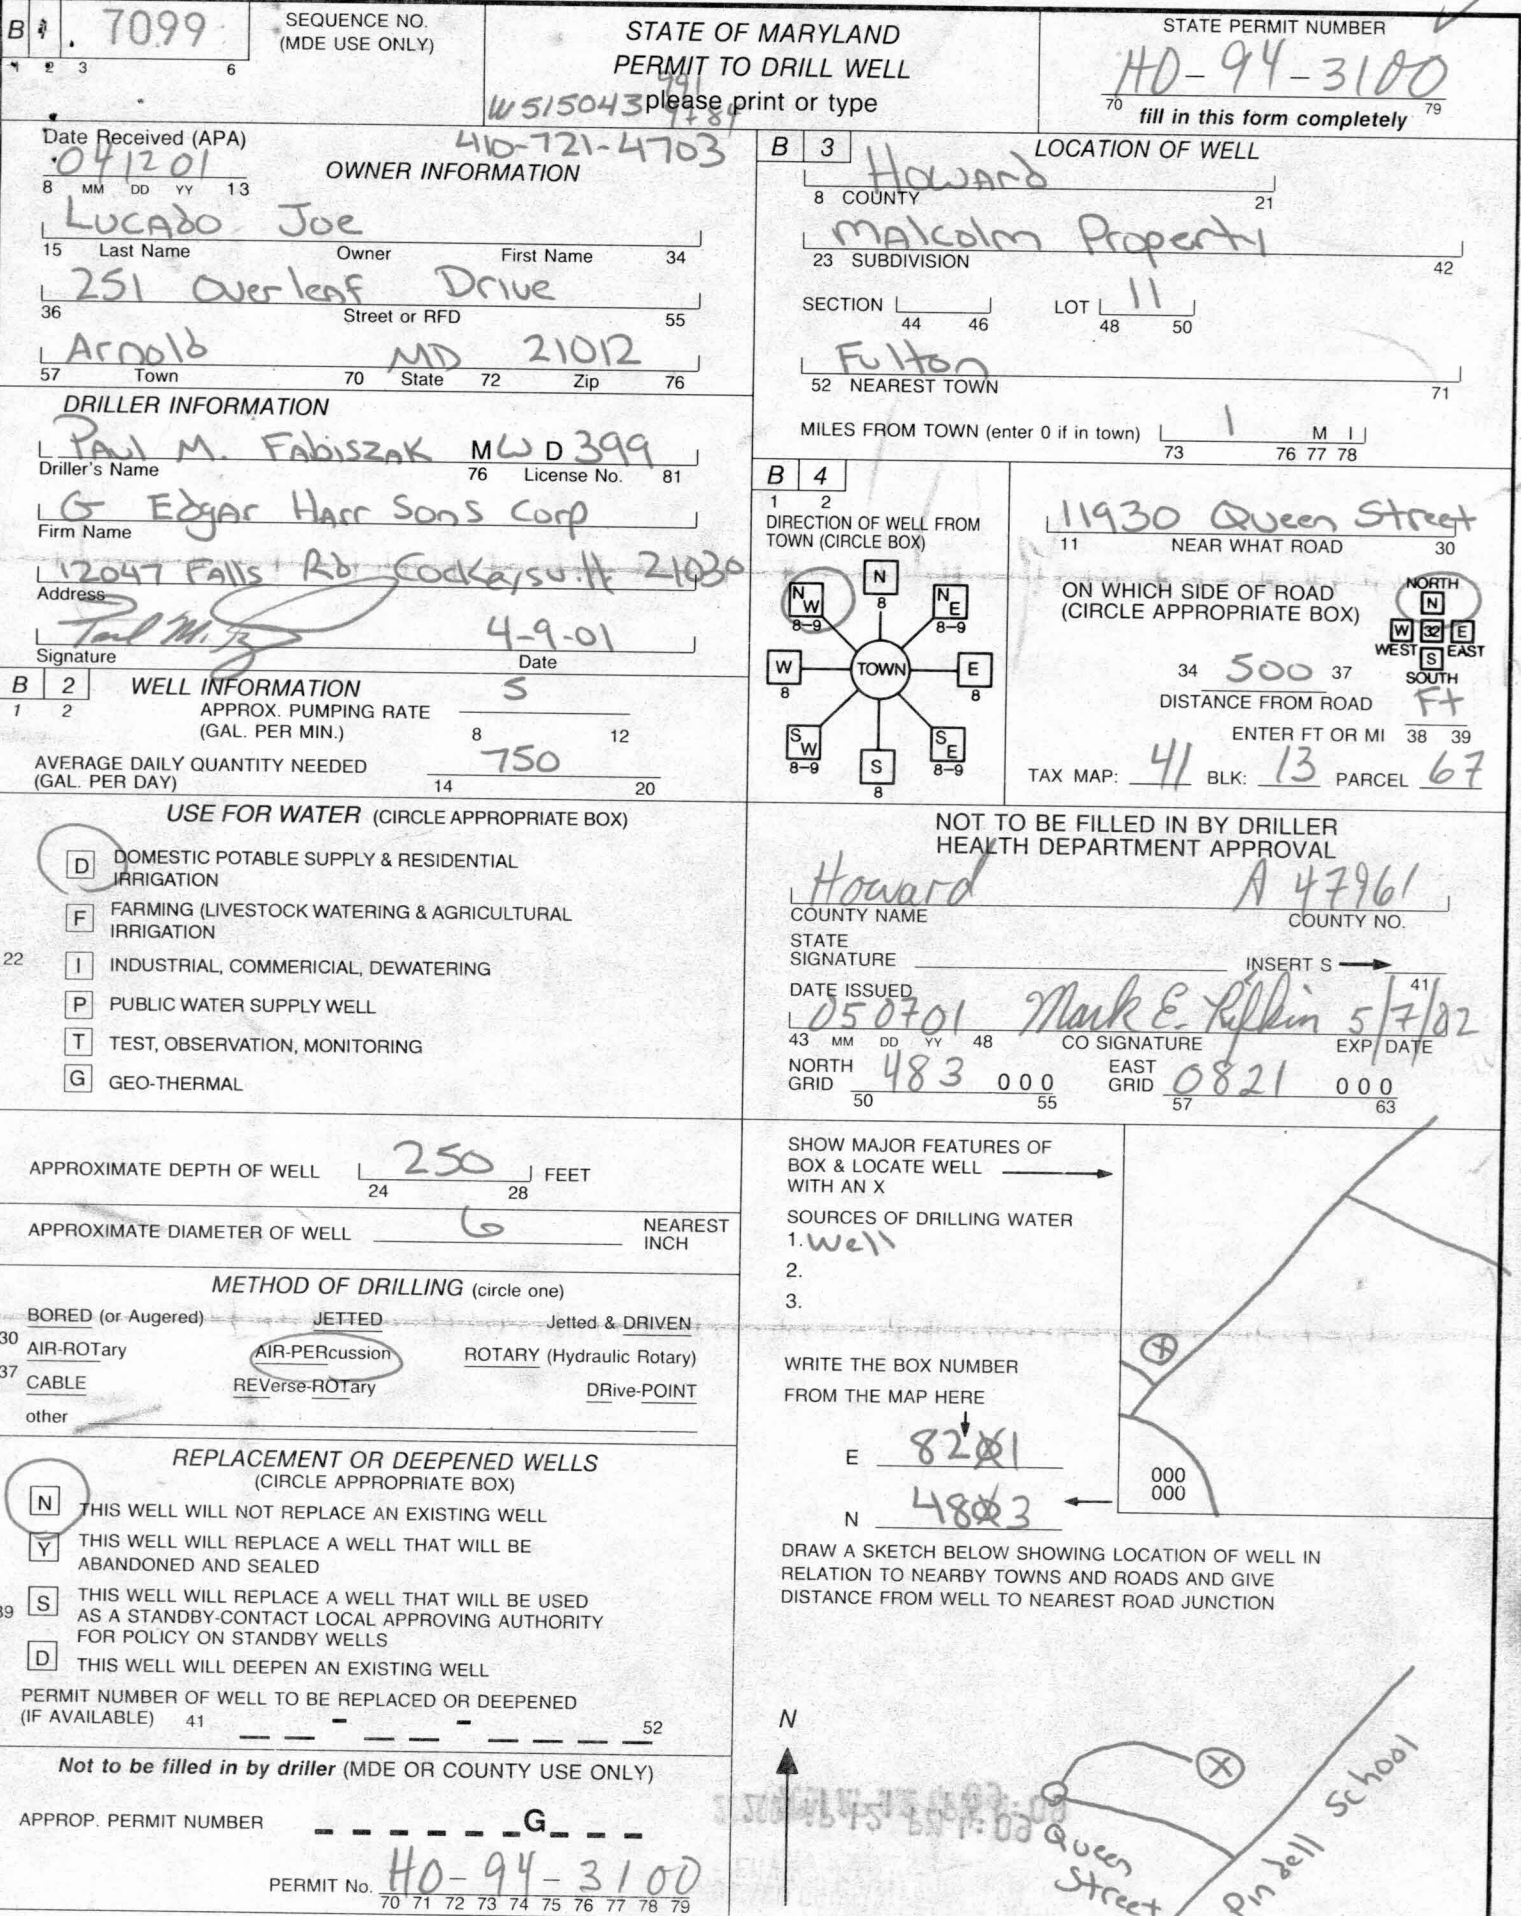 B 1 7099
1 2 3 6
SEQUENCE NO.
(MDE USE ONLY)
STATE OF MARYLAND
PERMIT TO DRILL WELL
please print or type
W515043
STATE PERMIT NUMBER
HO-94-3100
70 79
fill in this form completely
Date Received (APA)
041201
8 MM DD YY 13
410-721-4703
OWNER INFORMATION
Lucado Joe
15 Last Name Owner First Name 34
251 Overleaf Drive
36 Street or RFD 55
Arnold MD 21012
57 Town 70 State 72 Zip 76
DRILLER INFORMATION
Paul M. Fabiszak MW D 399
Driller's Name 76 License No. 81
G Edgar Harr Sons Corp
Firm Name
12047 Falls Rd Cockeysville 21030
Address
4-9-01
Signature Date
B 2 WELL INFORMATION
1 2
APPROX. PUMPING RATE 5
(GAL. PER MIN.) 8 12
AVERAGE DAILY QUANTITY NEEDED 750
(GAL. PER DAY) 14 20
USE FOR WATER (CIRCLE APPROPRIATE BOX)
D DOMESTIC POTABLE SUPPLY & RESIDENTIAL
IRRIGATION
F FARMING (LIVESTOCK WATERING & AGRICULTURAL
IRRIGATION
22 I INDUSTRIAL, COMMERICIAL, DEWATERING
P PUBLIC WATER SUPPLY WELL
T TEST, OBSERVATION, MONITORING
G GEO-THERMAL
APPROXIMATE DEPTH OF WELL 250 FEET
24 28
APPROXIMATE DIAMETER OF WELL 6 NEAREST
INCH
METHOD OF DRILLING (circle one)
BORED (or Augered) JETTED Jetted & DRIVEN
30 AIR-ROTary AIR-PERcussion ROTARY (Hydraulic Rotary)
37 CABLE REVerse-ROTary DRive-POINT
other
REPLACEMENT OR DEEPENED WELLS
(CIRCLE APPROPRIATE BOX)
N THIS WELL WILL NOT REPLACE AN EXISTING WELL
Y THIS WELL WILL REPLACE A WELL THAT WILL BE
ABANDONED AND SEALED
39 S THIS WELL WILL REPLACE A WELL THAT WILL BE USED
AS A STANDBY-CONTACT LOCAL APPROVING AUTHORITY
FOR POLICY ON STANDBY WELLS
D THIS WELL WILL DEEPEN AN EXISTING WELL
PERMIT NUMBER OF WELL TO BE REPLACED OR DEEPENED
(IF AVAILABLE) 41 52
Not to be filled in by driller (MDE OR COUNTY USE ONLY)
APPROP. PERMIT NUMBER G
PERMIT No. HO-94-3100
70 71 72 73 74 75 76 77 78 79
B 3 LOCATION OF WELL
Howard
8 COUNTY 21
Malcolm Property
23 SUBDIVISION 42
SECTION LOT 11
44 46 48 50
Fulton
52 NEAREST TOWN 71
MILES FROM TOWN (enter 0 if in town) 1 M I
73 76 77 78
B 4
1 2
DIRECTION OF WELL FROM
TOWN (CIRCLE BOX)
N W 8-9 N 8 N E 8-9
W 8 TOWN E 8
S W 8-9 S 8 S E 8-9
11930 Queen Street
11 NEAR WHAT ROAD 30
ON WHICH SIDE OF ROAD
(CIRCLE APPROPRIATE BOX)
NORTH
N
W 32 E
WEST S EAST
SOUTH
34 500 37
DISTANCE FROM ROAD Ft
ENTER FT OR MI 38 39
TAX MAP: 41 BLK: 13 PARCEL 67
NOT TO BE FILLED IN BY DRILLER
HEALTH DEPARTMENT APPROVAL
Howard A 47961
COUNTY NAME COUNTY NO.
STATE
SIGNATURE INSERT S
41
DATE ISSUED
050701 Mark E. Rifkin 5/7/02
43 MM DD YY 48 CO SIGNATURE EXP DATE
NORTH GRID 483 000 EAST GRID 0821 000
50 55 57 63
SHOW MAJOR FEATURES OF
BOX & LOCATE WELL
WITH AN X
SOURCES OF DRILLING WATER
1. Well
2.
3.
WRITE THE BOX NUMBER
FROM THE MAP HERE
E 821
N 483
X
000
000
DRAW A SKETCH BELOW SHOWING LOCATION OF WELL IN
RELATION TO NEARBY TOWNS AND ROADS AND GIVE
DISTANCE FROM WELL TO NEAREST ROAD JUNCTION
N
X
Queen
Street
Pindell School